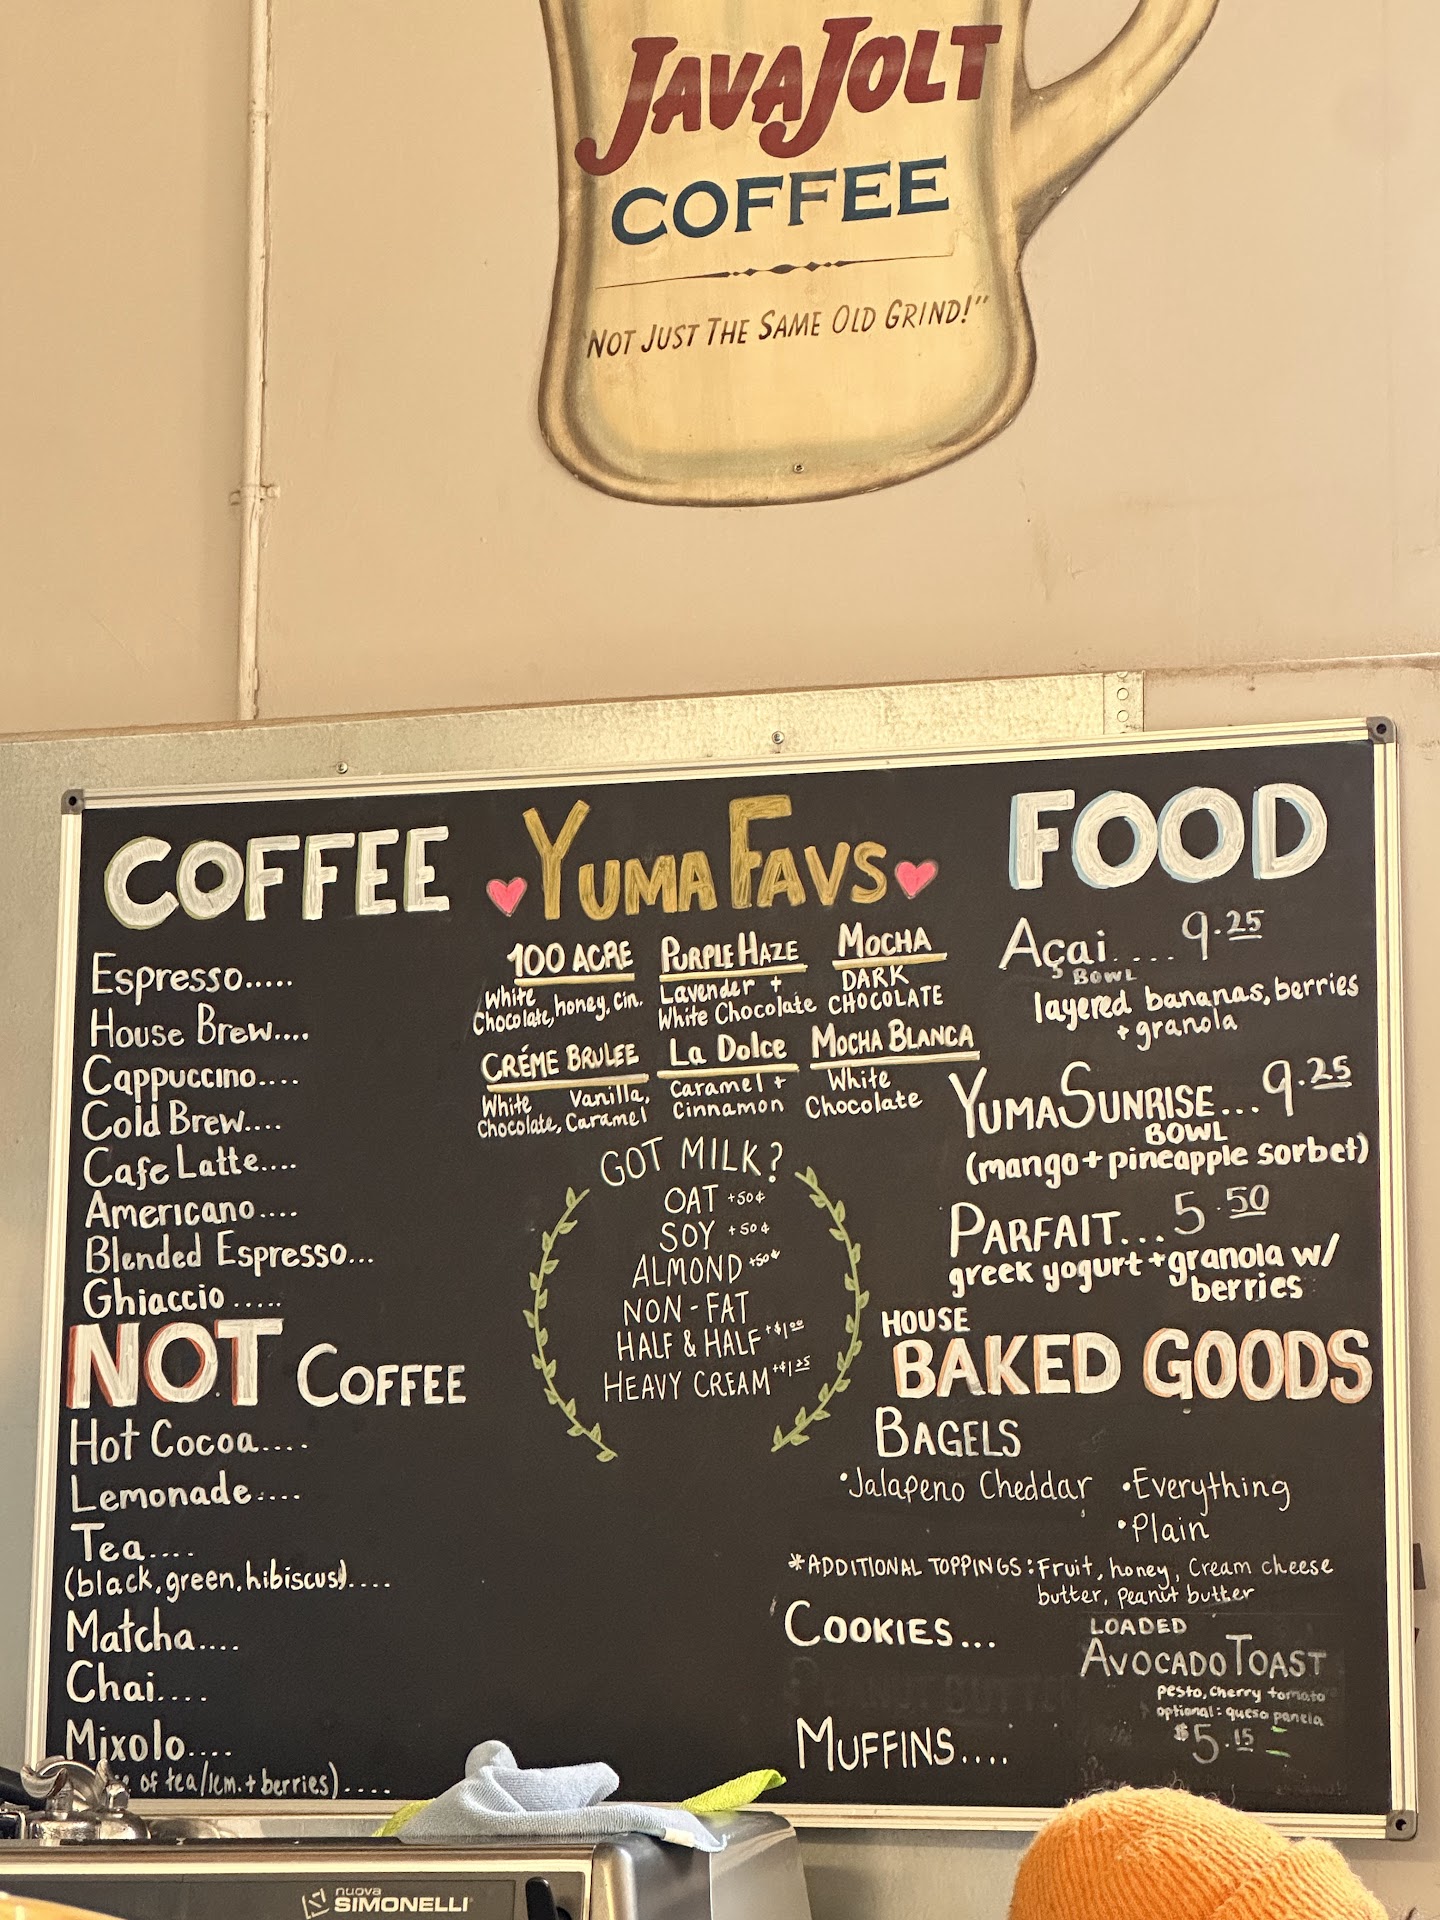 JAVA JOLT
COFFEE
"NOT JUST THE SAME OLD GRIND!"
COFFEE
Espresso.....
House Brew....
Cappuccino....
Cold Brew....
Cafe Latte....
Americano....
Blended Espresso...
Ghiaccio.....
NOT COFFEE
Hot Cocoa....
Lemonade....
Tea....
(black, green, hibiscus)....
Matcha....
Chai....
Mixolo....
of tea/lem. + berries)....
YUMA FAVS
100 ACRE
White
Chocolate, honey, cin.
PURPLE HAZE
Lavender +
White Chocolate
MOCHA
DARK
CHOCOLATE
CRÉME BRULEE
White Vanilla,
Chocolate, Caramel
LA DOLCE
Caramel +
Cinnamon
MOCHA BLANCA
White
Chocolate
GOT MILK?
OAT +50¢
SOY +50¢
ALMOND +50¢
NON-FAT
HALF & HALF +$1.00
HEAVY CREAM +$1.25
FOOD
Açai.... 9.25
BOWL
layered bananas, berries
+ granola
YUMA SUNRISE... 9.25
BOWL
(mango + pineapple sorbet)
PARFAIT... 5.50
greek yogurt + granola w/
berries
HOUSE
BAKED GOODS
BAGELS
•Jalapeno Cheddar •Everything
•Plain
*ADDITIONAL TOPPINGS: Fruit, honey, Cream cheese
butter, Peanut butter
COOKIES...
MUFFINS....
LOADED
AVOCADO TOAST
pesto, cherry tomato
optional: queso panela
$5.15
nuova
SIMONELLI